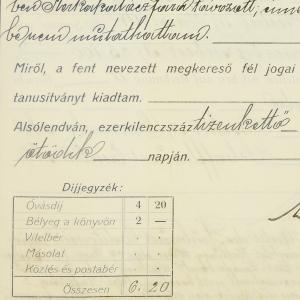 be nem mutathattam.
Miről, a fent nevezett megkereső fél jogai
tanusítványt kiadtam.
Alsólendván, ezerkilenczszáz tizenkettő
ötödik napján.
Díjjegyzék:
Óvásdíj 4 20
Bélyeg a könyvön 2 —
Vitelbér . .
Másolat . .
Közlés és postabér . .
Összesen 6. 20